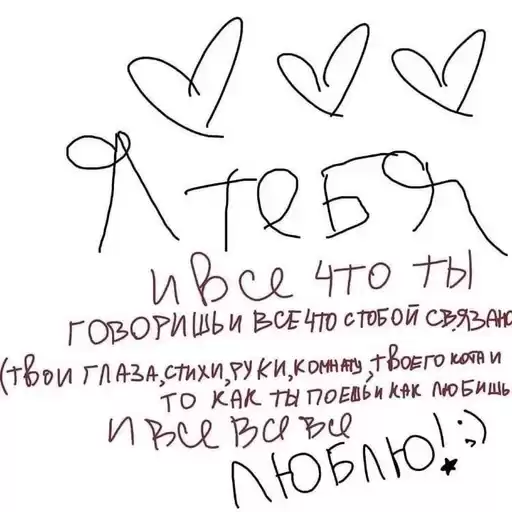 Я ТЕБЯ
И ВСЕ ЧТО ТЫ
ГОВОРИШЬ И ВСЕ ЧТО С ТОБОЙ СВЯЗАНО
(ТВОИ ГЛАЗА, СТИХИ, РУКИ, КОМНАТУ, ТВОЕГО КОТА И
ТО КАК ТЫ ПОЕШЬ И КАК ЛЮБИШЬ
И ВСЕ ВСЕ ВСЕ
ЛЮБЛЮ! ;)